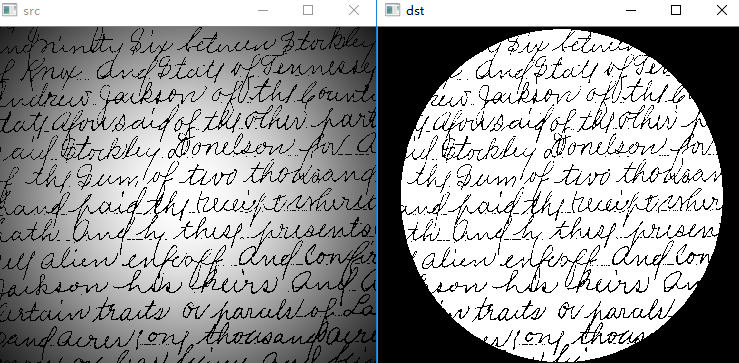 src
dst
indninety Six between Stockley
of Knox. And State of Tennessey
Andrew Jackson of the Count
tate aforesaid of the other part
aid Stockley Donelson for A
f the Sum of two thousand
hand paid the receipt where
ath And by these presents
uly alien enfeoff And Confir
Jackson his heirs And A
ertain traits or parcels of La
sand acres ong thousand acre
Six between
And State of Tenne
rew Jackson of the C
aforesaid of the other p
aid Stockley Donelson for
the Sum of two thousan
and paid the receipt whire
th And by these presen
alien enfeoff And Con
son his heirs An
n traits or parcels
res ong thousa